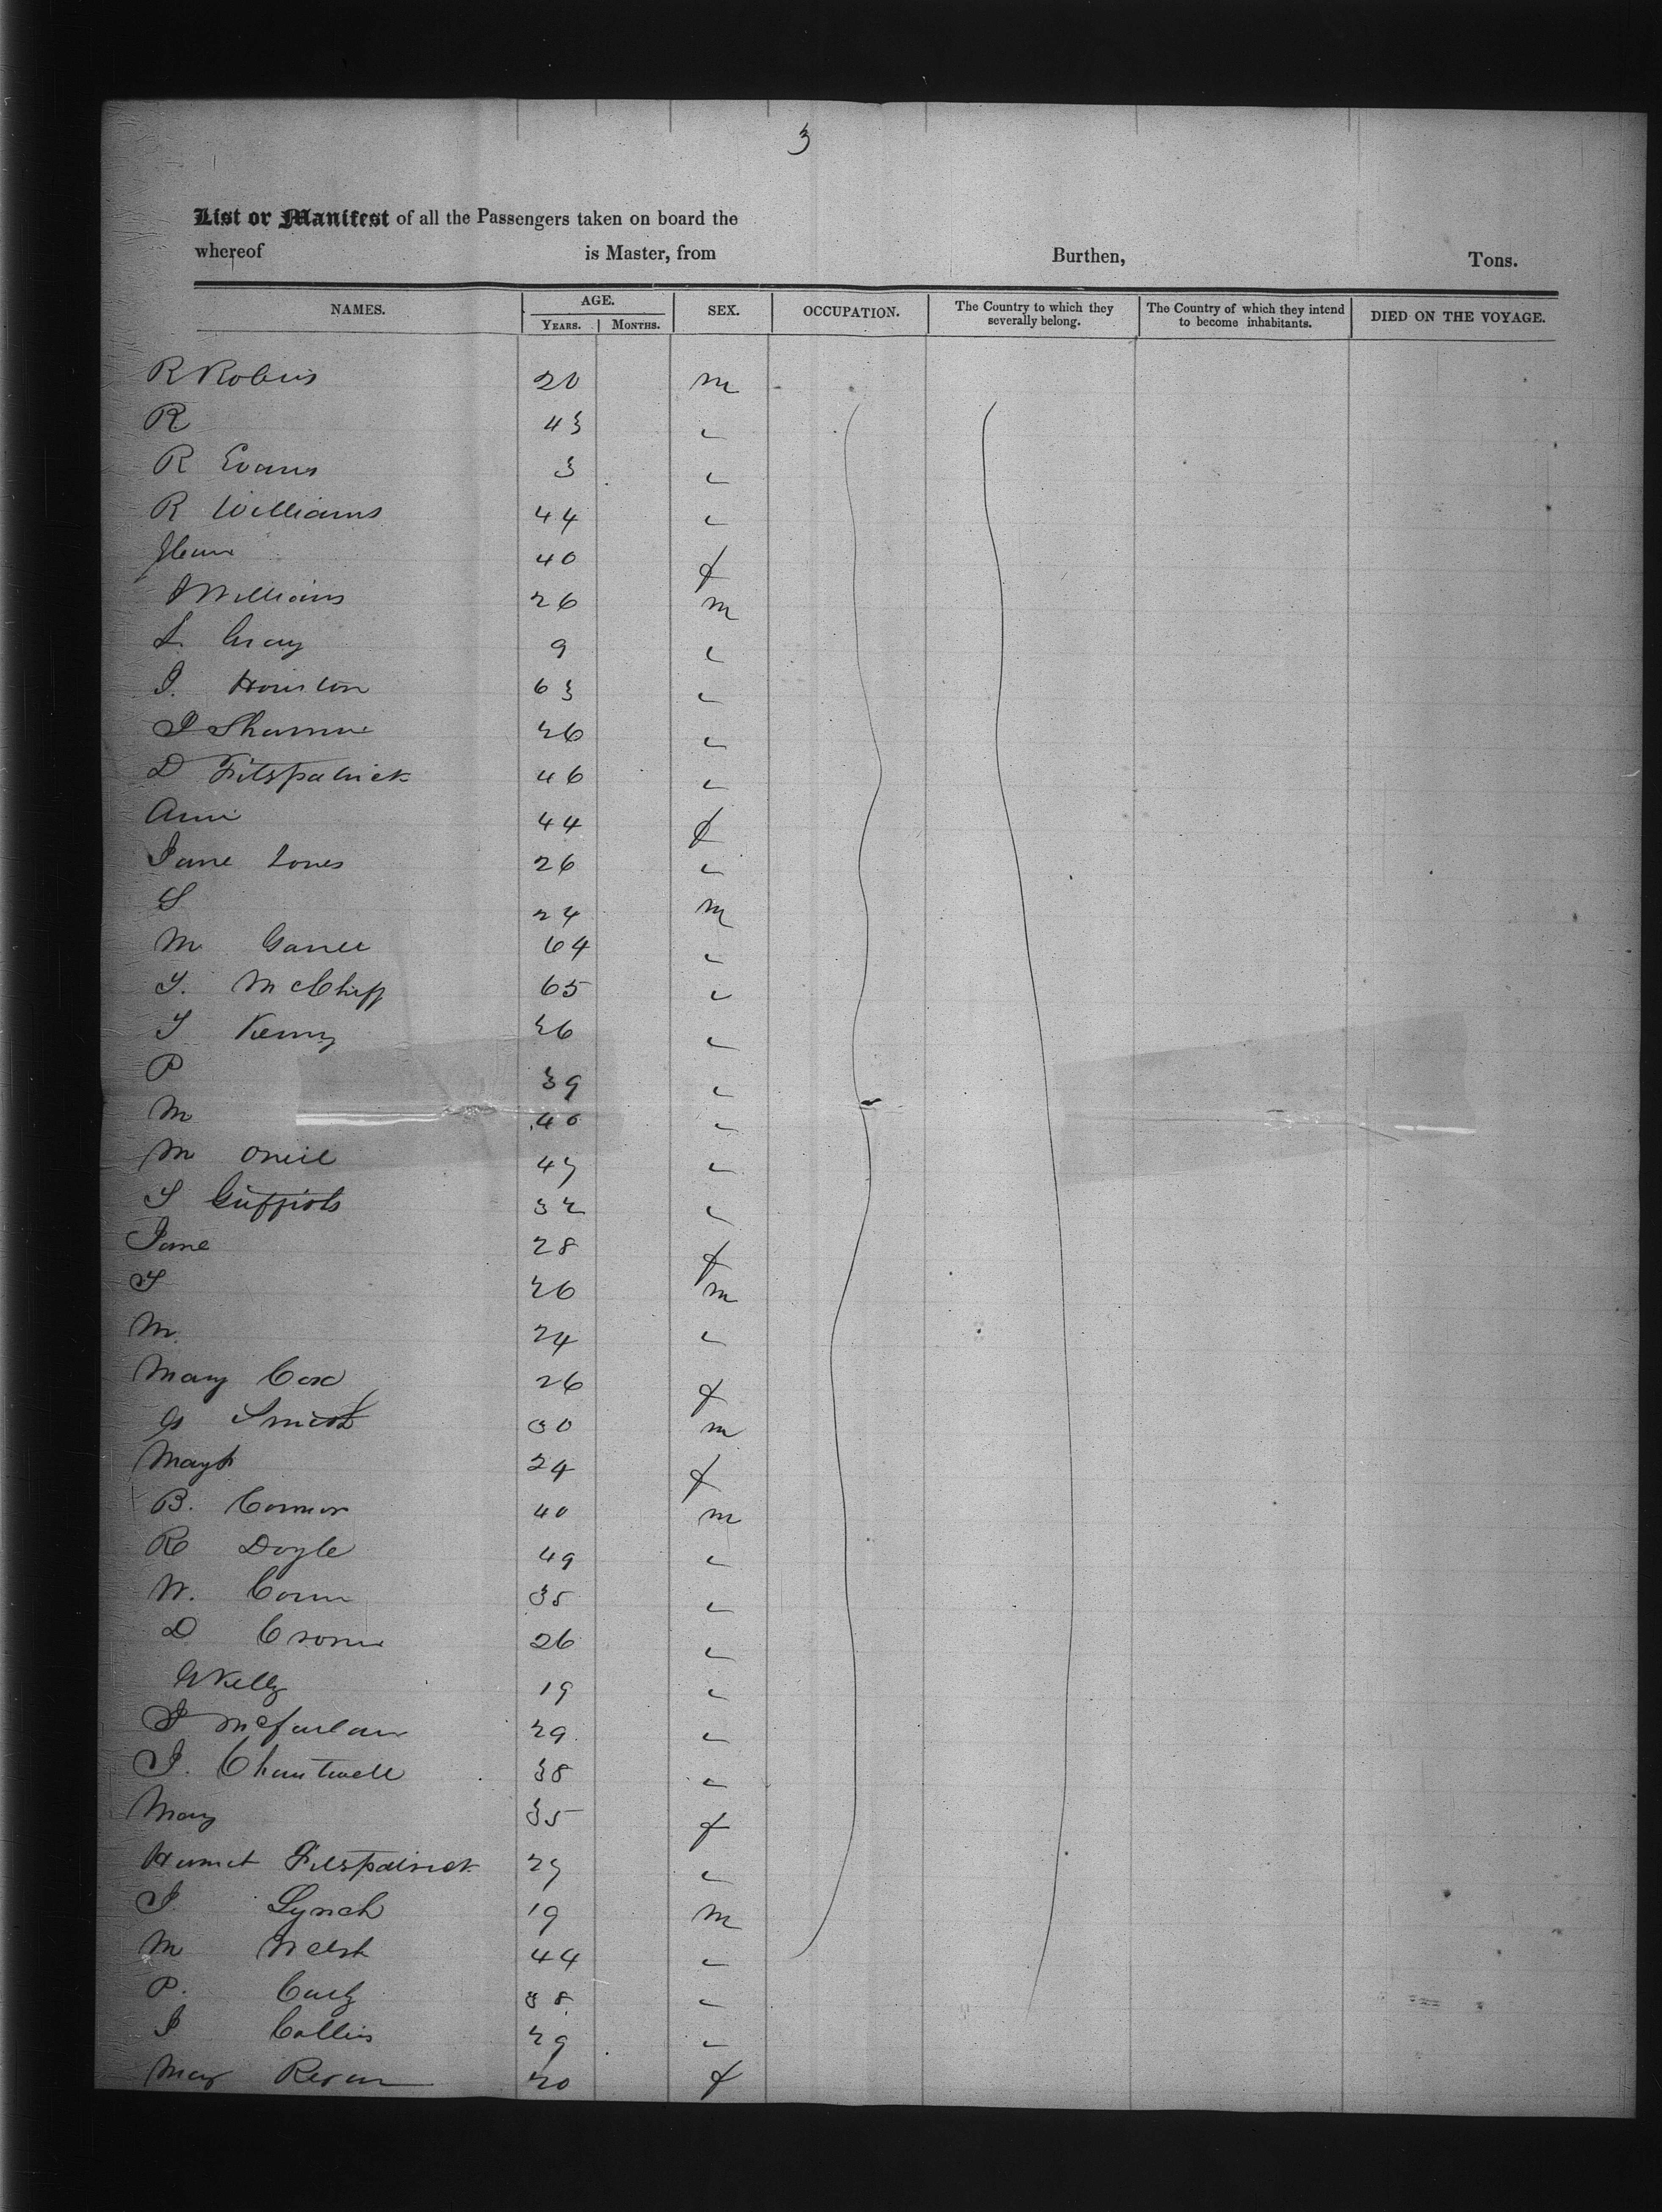 3
List or Manifest of all the Passengers taken on board the
whereof is Master, from Burthen, Tons.
NAMES. AGE. SEX. OCCUPATION. The Country to which they severally belong. The Country of which they intend to become inhabitants. DIED ON THE VOYAGE.
YEARS. MONTHS.
R Robins 20 m
R 43 "
R Evans 3 "
R Williams 44 "
40 f
J Williams 26 m
L. Gray 9 "
J. Houston 63 "
J 26 "
D Fitzpatrick 46 "
Ann 44 f
Jane Jones 26 "
S 24 m
M 64 "
T. 65 "
T Kenny 26 "
P 39 "
M 40 "
M Oneil 47 "
T 32 "
Jane 28 f
T 26 m
M. 24 "
Mary Cox 26 f
G Smith 30 m
Magt 24 f
B. Connor 40 m
R Doyle 49 "
W. 35 "
D 26 "
Kelly 19 "
J McFarlan 29 "
J. Chantwell 38 "
Mary 35 f
Fitzpatrick 27 "
J. Lynch 19 m
M Welsh 44 "
P. 38 "
J Collins 29 "
Mary 20 f